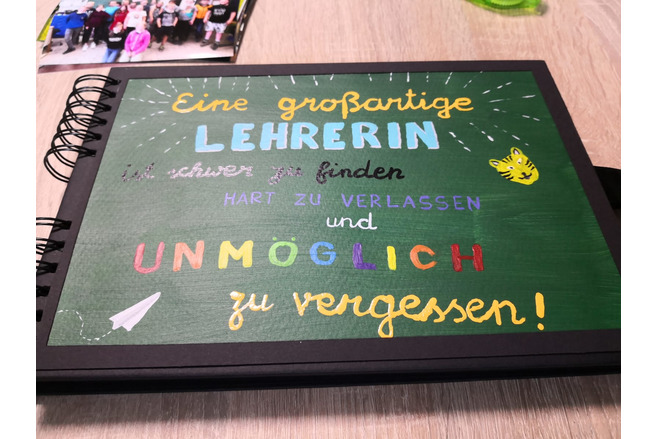 Eine großartige
LEHRERIN
ist schwer zu finden
HART ZU VERLASSEN
und
UNMÖGLICH
zu vergessen!